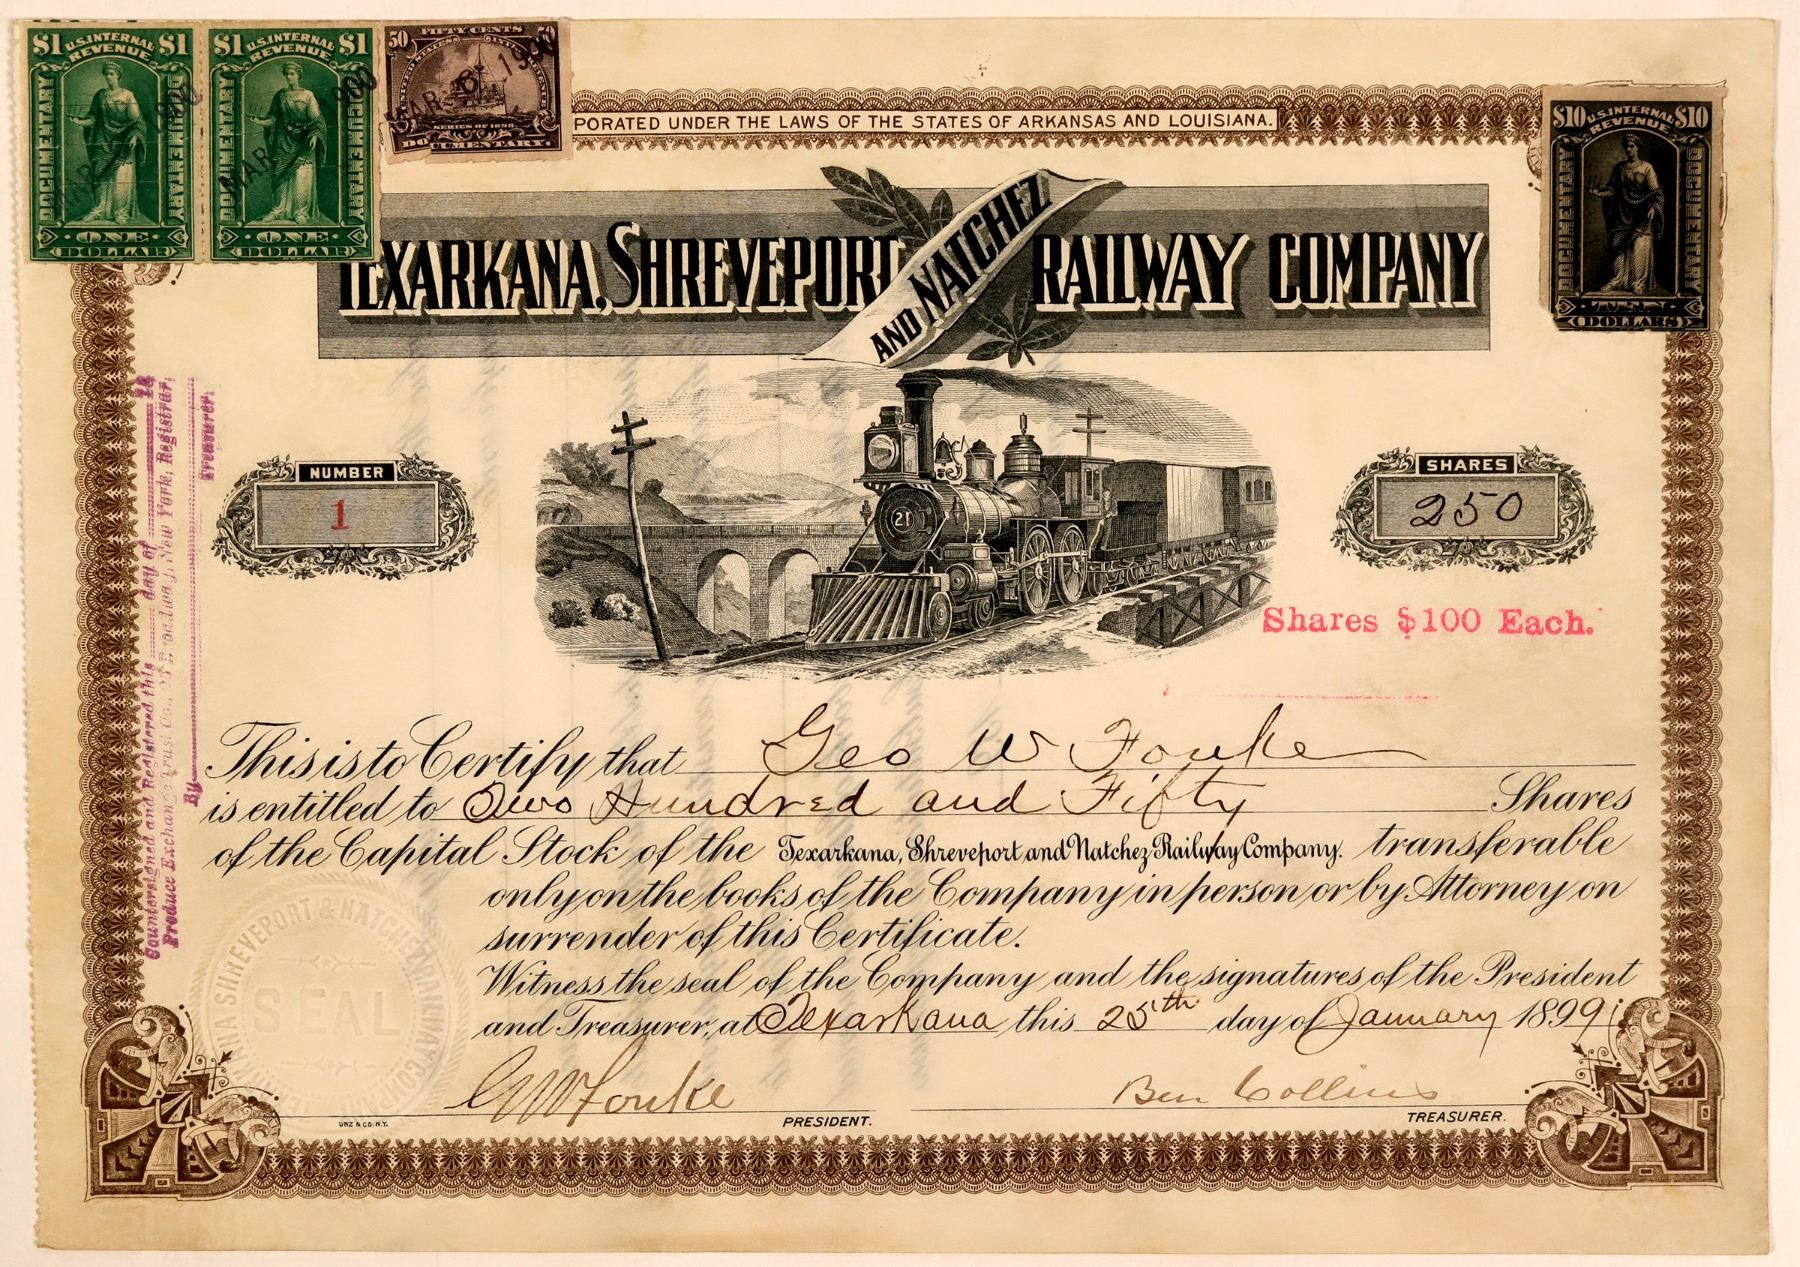 $1 U.S. INTERNAL REVENUE $1
DOCUMENTARY
DOCUMENTARY
ONE
DOLLAR
$1 U.S. INTERNAL REVENUE $1
DOCUMENTARY
DOCUMENTARY
ONE
DOLLAR
MAR 1900
50 FIFTY CENTS 50
UNITED STATES INTERNAL REVENUE
MAR 6 1900
SERIES OF 1898.
DOCUMENTARY.
$10 U.S. INTERNAL REVENUE $10
DOCUMENTARY
DOCUMENTARY
TEN
DOLLARS
PORATED UNDER THE LAWS OF THE STATES OF ARKANSAS AND LOUISIANA.
TEXARKANA, SHREVEPORT AND NATCHEZ RAILWAY COMPANY
NUMBER
1
21
SHARES
250
Shares $100 Each.
Countersigned and Registered this day of 18
Produce Exchange Trust Co., Broadway, New York, Registrar,
By Treasurer.
This is to Certify that Geo W Fouke
is entitled to Two Hundred and Fifty Shares
of the Capital Stock of the Texarkana, Shreveport and Natchez Railway Company. transferable
only on the books of the Company in person or by Attorney on
surrender of this Certificate.
Witness the seal of the Company and the signatures of the President
and Treasurer, at Texarkana this 25th day of January 1899
SHREVEPORT & NATCHEZ RAILWAY COMPANY
SEAL
G W Fouke
PRESIDENT.
Ben Collins
TREASURER.
UNZ & CO. N.Y.